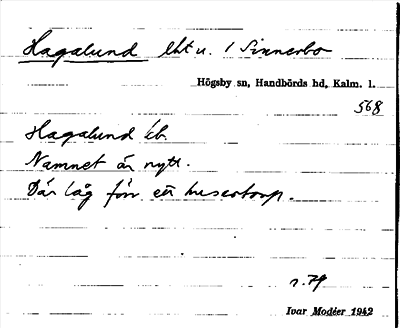 Hagalund lht u. 1 Sinnerbo
Högsby sn, Handbörds hd, Kalm. l.
568
Hagalund
Namnet är nytt.
Där låg förr ett husartorp.
s. 79
Ivar Modéer 1942